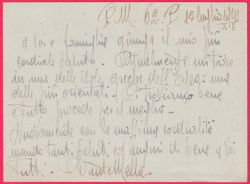 P.M. 62 P
a voi e famiglia giunga il mio più
cordiale saluto. Attualmente mi trovo
in una delle isole greche dell'Egeo: una
delle più orientali. Ci troviamo bene
e tutto procede per il meglio.
Nuovamente con la massima cordialità
mando tanti saluti ed auguri di bene a voi
tutti.